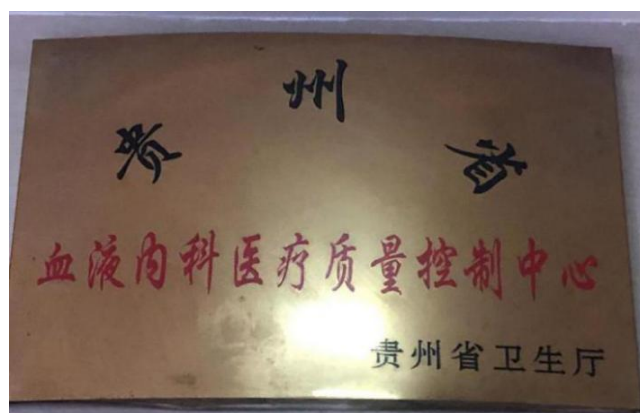 贵州省
血液内科医疗质量控制中心
贵州省卫生厅